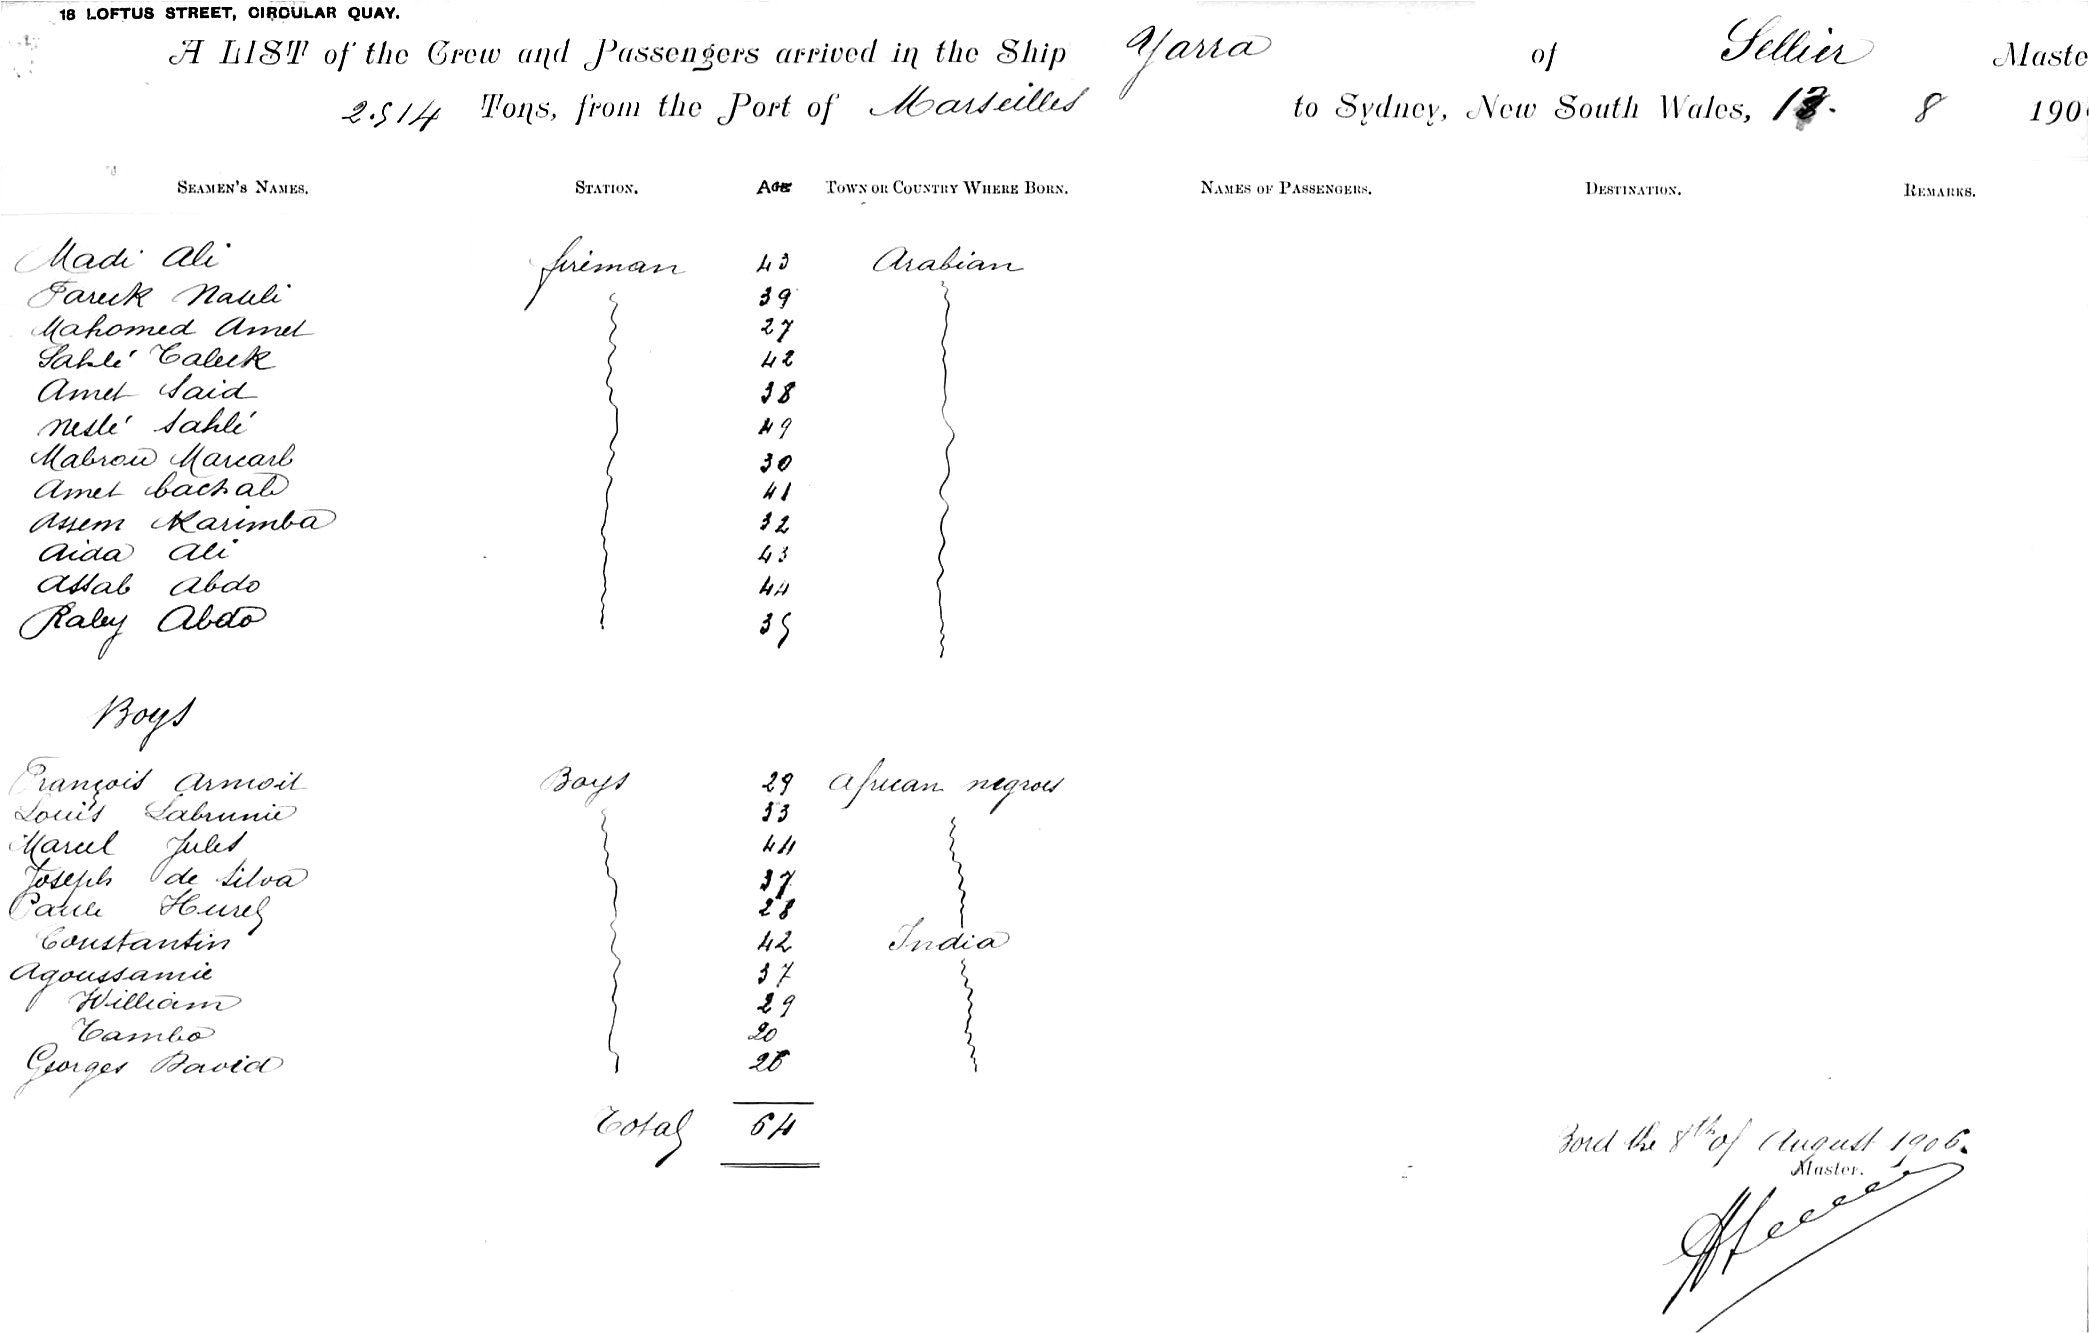 18 LOFTUS STREET, CIRCULAR QUAY.
A LIST of the Crew and Passengers arrived in the Ship Yarra of Sellier Maste
2.514 Tons, from the Port of Marseilles to Sydney, New South Wales, 8 190
SEAMEN'S NAMES. STATION. AGE TOWN OR COUNTRY WHERE BORN. NAMES OF PASSENGERS. DESTINATION. REMARKS.
Madi Ali fireman 43 Arabian
Fareck 39
Mahomed Amet 27
Sahlé Taleck 42
Amet Said 38
Neslé Sahlé 49
Mabrou 30
Amet 41
Assem Karimba 32
Aida Ali 43
Assab Abdo 44
Raby Abdo 35
Boys
François Armoit Boys 29 African negroes
Louis Labrunie 33
Marcel Jules 44
Joseph de Silva 37
Paule Hurel 28
Constantin 42 India
Agoussamie 37
William 29
Tambo 20
Georges David 26
Total 64
Bord the 8th of August 1906.
Master.